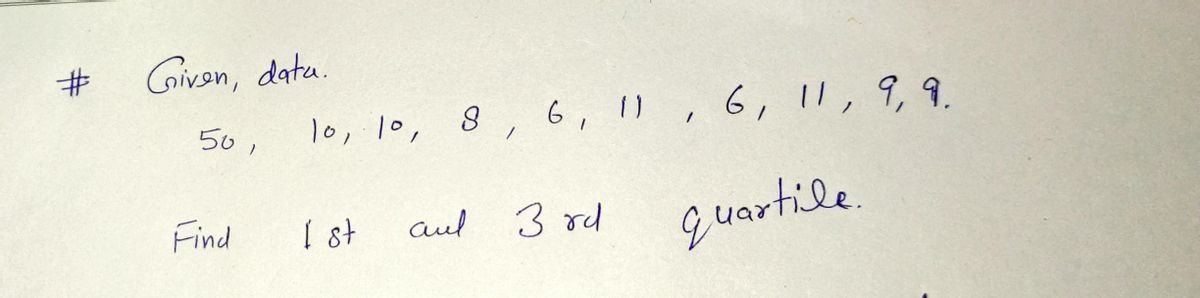 # Given, data.
50, 10, 10, 8, 6, 11, 6, 11, 9, 9.
Find 1 st and 3 rd quartile.